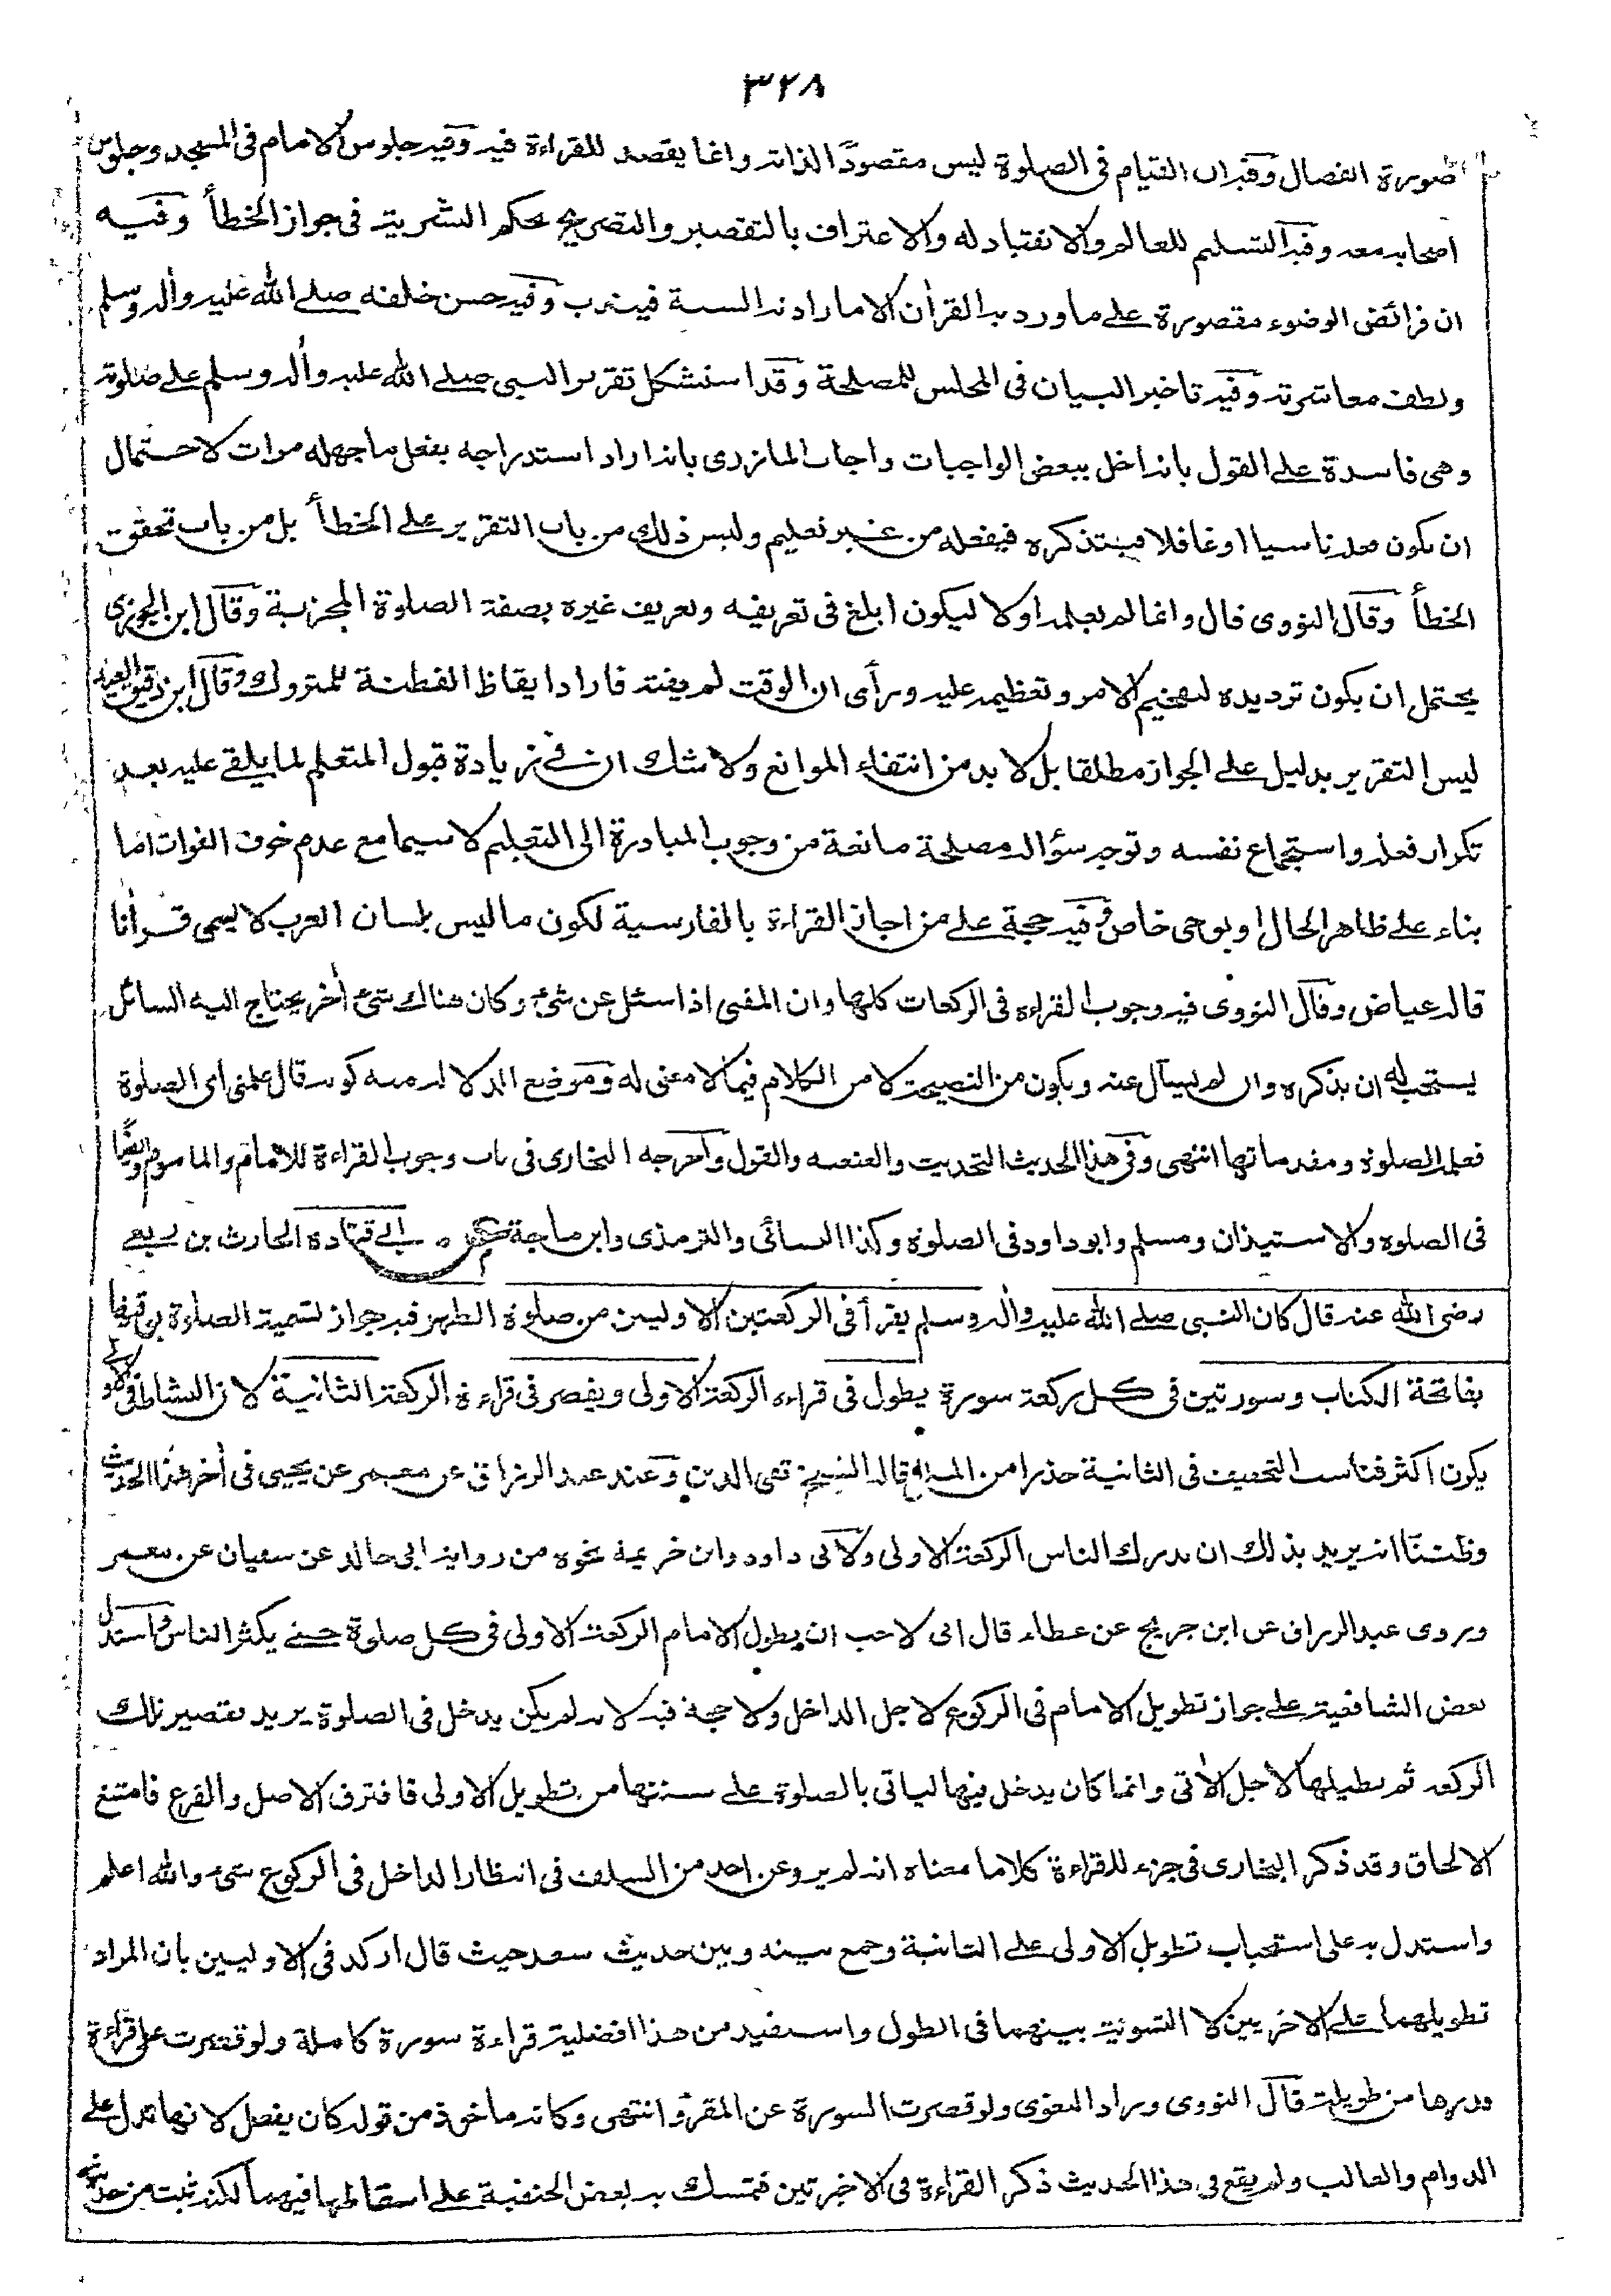 ٣٢٨
صورة الفصال وفيه ان القيام فى الصلوة ليس مقصودًا لذاته وانما يقصد للقراءة فيه وفيه جلوس الامام فى المسجد وجلوس
اصحابه معه وفيه التسليم للعالم والانقياد له والاعتراف بالتقصير والتصريح بحكم البشرية فى جواز الخطأ وفيه
ان فرائض الوضوء مقصورة على ما ورد به القرأن لا ما زادته السنة فيندب وفيه حسن خلقه صلے الله عليه وأله وسلم
ولطف معاشرته وفيه تاخير البيان فى المجلس للمصلحة وقد استشكل تقرير النبى صلے الله عليه وأله وسلم على صلوته
وهى فاسدة على القول بانه اخل ببعض الواجبات واجاب المازرى بانه اراد استدراجه بفعل ما جهله مرات لاحتمال
ان يكون فعله ناسيا او غافلا فيتذكره فيفعله من غير تعليم وليس ذلك من باب التقرير على الخطأ بل من باب تحقق
الخطأ وقال النووى قال وانما لم يعلمه اولا ليكون ابلغ فى تعريفه وتعريف غيره بصفة الصلوة المجزية وقال ابن الجوزى
يحتمل ان يكون ترديده لتفخيم الامر وتعظيمه عليه ورأى ان الوقت لم يفته فاراد ايقاظ الفطنة للمتروك وقال ابن دقيق العيد
ليس التقرير بدليل على الجواز مطلقا بل لا بد من انتفاء الموانع ولا شك ان فى زيادة قبول المتعلم لما يلقى عليه بعد
تكرار فعله واستجماع نفسه وتوجه سؤاله مصلحة مانعة من وجوب المبادرة الى التعليم لا سيما مع عدم خوف الفوات اما
بناء على ظاهر الحال او بوحى خاص وفيه حجة على من اجاز القراءة بالفارسية لكون ما ليس بلسان العرب لا يسمى قرأنا
قاله عياض وقال النووى فيه وجوب القراءه فى الركعات كلها وان المفتى اذا سئل عن شئ وكان هناك شئ أخر يحتاج اليه السائل
يستحب له ان يذكره وان لم يسأل عنه ويكون من النصيحة لا من الكلام فيما لا معنى له وموضع الدلالة منه كونه قال علمنى اى الصلوة
فعلمه الصلوة ومقدماتها انتهى وفى هذا الحديث التحديث والعنعنه والقول واخرجه البخارى فى باب وجوب القراءة للامام والماموم وايضًا
فى الصلوه والاستيذان ومسلم وابو داود فى الصلوة وكذا النسائى والترمذى وابن ماجة عن ابى قتادة الحارث بن ربعى
رضى الله عنه قال كان النبى صلے الله عليه وأله وسلم يقرأ فى الركعتين الاوليين من صلوة الظهر فيه جواز تسمية الصلوة بوقتها
بفاتحة الكتاب وسورتين فى كل ركعة سورة يطول فى قراءه الركعة الاولى ويقصر فى قراءة الركعة الثانية لان النشاط فى الاولى
يكون اكثر فناسب التخفيف فى الثانية حذرا من الملل قاله الشيخ تقى الدين وعند عبد الرزاق عن معمر عن يحيى فى أخر هذا الحديث
وظننا انه يريد بذلك ان يدرك الناس الركعة الاولى ولابى داود وابن خزيمة نحوه من رواية ابى خالد عن سفيان عن معمر
وروى عبد الرزاق عن ابن جريج عن عطاء قال انى لاحب ان يطول الامام الركعة الاولى فى كل صلوة حتى يكثر الناس واستدل
بعض الشافعية على جواز تطويل الامام فى الركوع لاجل الداخل ولا حجة فيه لانه لم يكن يدخل فى الصلوة يريد تقصير تلك
الركعه ثم يطيلها لاجل الأتى وانما كان يدخل فيها لياتى بالصلوة على سنتها من تطويل الاولى فافترق الاصل والفرع فامتنع
الالحاق وقد ذكر البخارى فى جزء للقراءة كلاما معناه انه لم يرو عن احد من السلف فى انتظار الداخل فى الركوع شئ والله اعلم
واستدل به على استحباب تطويل الاولى على الثانية وجمع بينه وبين حديث سعد حيث قال اركد فى الاوليين بان المراد
تطويلهما على الاخريين لا التسوية بينهما فى الطول واستفيد من هذا افضلية قراءة سورة كاملة ولو قصرت على قراءة
قدرها من طويلة قال النووى وزاد البغوى ولو قصرت السورة عن المقرؤ انتهى وكانه ماخوذ من قوله كان يفعل لانها تدل على
الدوام والغالب ولم يقع فى هذا الحديث ذكر القراءة فى الاخيرتين فتمسك به بعض الحنفية على اسقاطها فيهما لكنه ثبت من حديثه